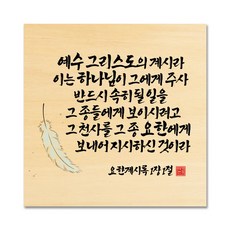 예수 그리스도의 계시라
이는 하나님이 그에게 주사
반드시 속히 될 일을
그 종들에게 보이시려고
그 천사를 그 종 요한에게
보내어 지시하신 것이라
요한계시록 1장 1절